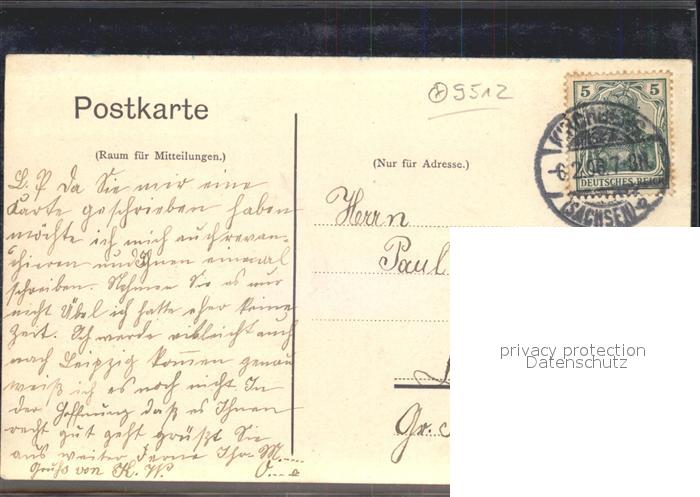 ⊛9512
Postkarte
(Raum für Mitteilungen.)
(Nur für Adresse.)
5 5
DEUTSCHES REICH
6.2.06.7-8N.
(SACHSEN)
L. P Da Sie mir eine
Karte geschrieben haben
möchte ich mich auch revan-
chieren und Ihnen einmal
schreiben. Nehmen Sie es nur
nicht Übel ich hatte eher keine
Zeit. Ich werde vielleicht auch
nach Leipzig kommen genau
weiß ich es noch nicht In
der Hoffnung daß es Ihnen
recht gut geht grüßt Sie
aus weiter Ferne Ihr M.
Gruß von K. W.
Herrn
Paul
Gr.
privacy protection
Datenschutz